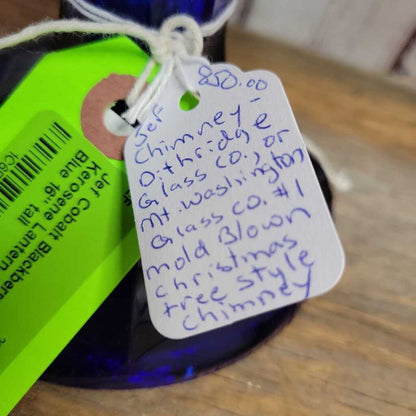 850.00
Jef
Chimney -
Dithridge
Glass Co., or
Mt. Washington
Glass Co. #1
mold Blown
christmas
tree style
Chimney
Jef Cobalt Blackberr
Kerosene Lantern
Blue 16" tall